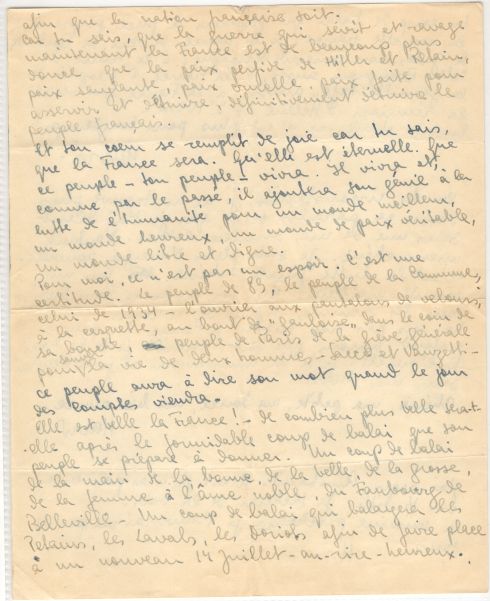 afin que la nation française soit.
Car tu sais, que la guerre qui sévit et ravage
maintenant la France est de beaucoup plus
douce que la paix perfide de Hitler et Pétain,
paix sanglante, paix cruelle, paix faite pour
asservir et détruire, définitivement détruire le
peuple français.
Et ton cœur se remplit de joie car tu sais,
que la France sera. Qu'elle est éternelle. Que
ce peuple - ton peuple - vivra. Il vivra et,
comme par le passé, il ajoutera son génie à la
lutte de l'humanité pour un monde meilleur,
un monde heureux, un monde de paix véritable,
un monde libre et digne.
Pour moi, ce n'est pas un espoir. C'est une
certitude. Le peuple de 89, le peuple de la Commune,
celui de 1934 - l'ouvrier aux pantalons de velours,
à la casquette, au bout de "gauloise" dans le coin de
sa bouche, peuple de Paris de la grève générale
pour sauver la vie de deux hommes - Sacco et Vanzetti -
ce peuple aura à dire son mot quand le jour
des comptes viendra.
Elle est belle la France! - De combien plus belle sera-t-
elle après le formidable coup de balai que son
peuple se prépare à donner. Un coup de balai
de la main de la bonne, de la belle, de la grosse,
de la femme à l'âme noble, du Faubourg de
Belleville - Un coup de balai qui balayera les
Pétains, les Lavals, les Doriots afin de faire place
à un nouveau 14 Juillet - au - rire - heureux.